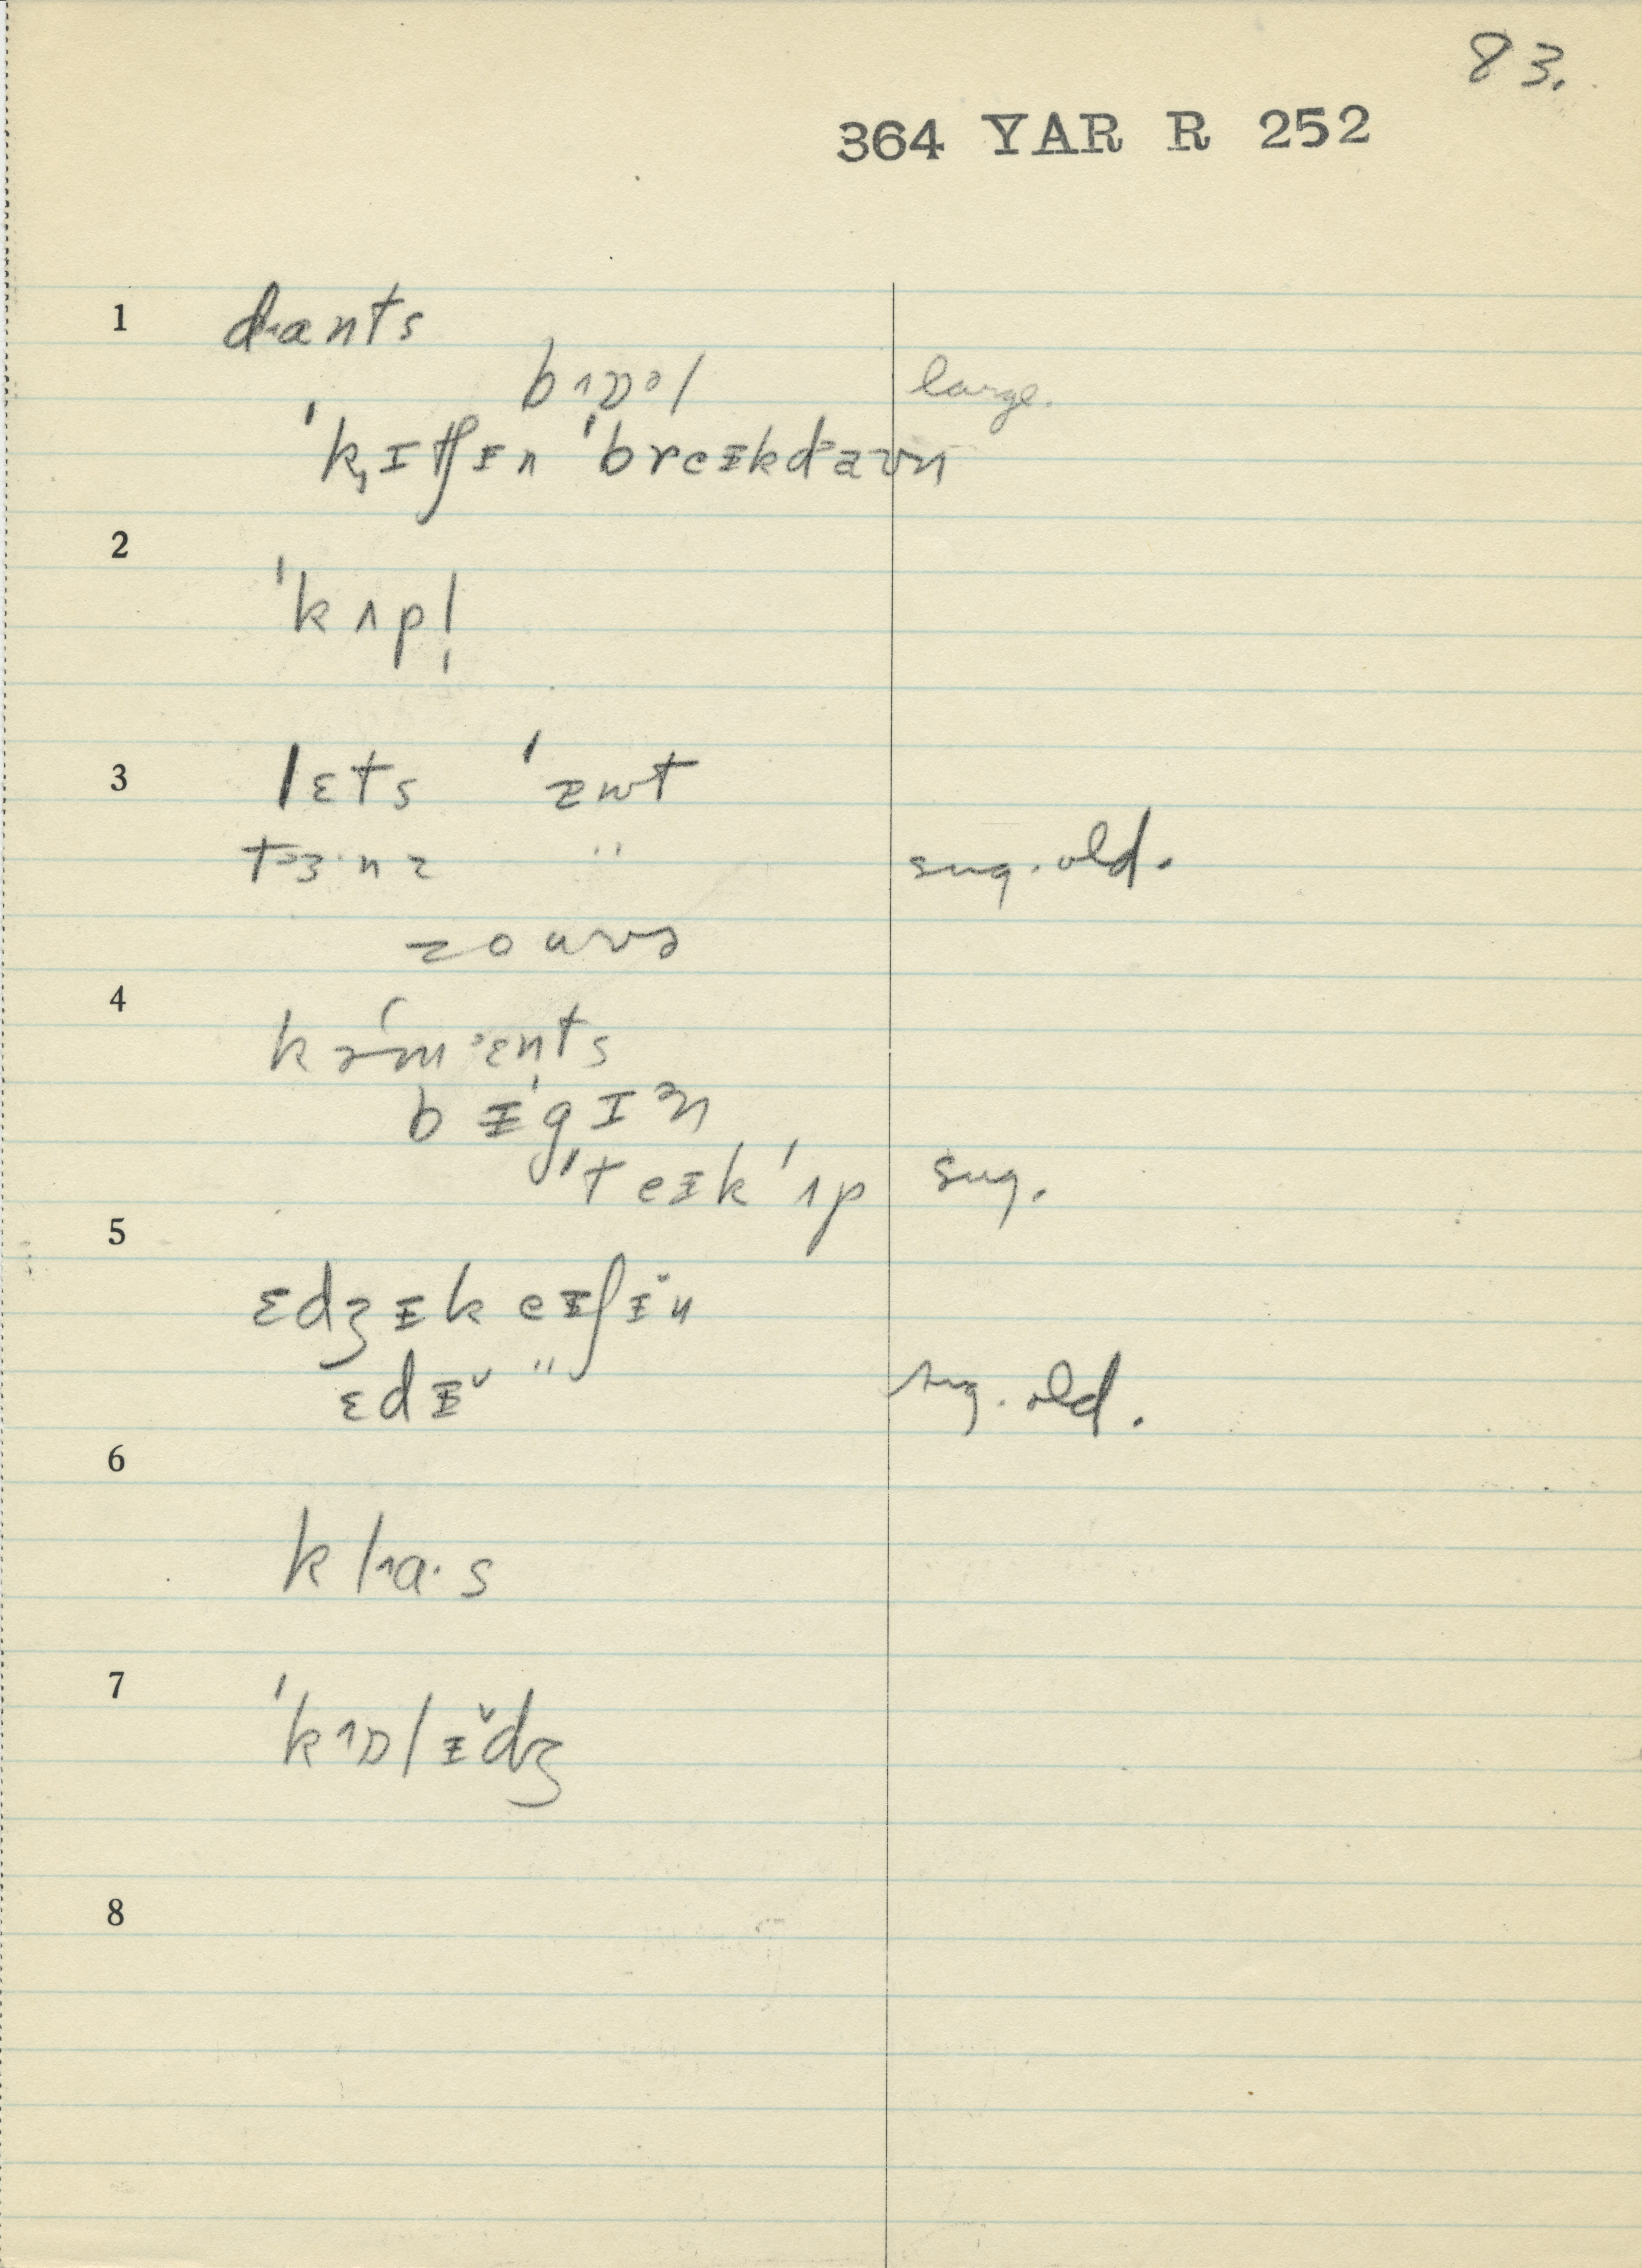 83.
364 YAR R 252
1 dants
bɒəl large.
ˈkɪtʃɪn ˈbreɪkdaʊn
2
ˈkʌpl̩
3 lɛts
tɜ·nz " sug. old.
4
kəmɛnts
bɪˈgɪn
5 ˈteɪkˈʌp sug.
ɛdʒɪkeɪʃɪ̆n
ɛdɪ̆ " sug. old.
6
kla·s
7
ˈkɒlɪ̆dʒ
8